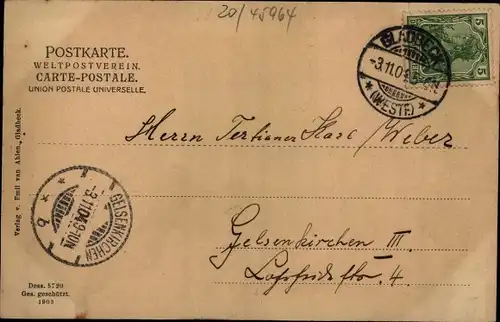 20/45964
POSTKARTE.
WELTPOSTVEREIN.
CARTE-POSTALE.
UNION POSTALE UNIVERSELLE.
GLADBECK
-3.11.04
* (WESTF.) *
5 5
Herrn Tertianer Karl Weber
Gelsenkirchen III.
4.
GELSENKIRCHEN
-3.11.04.9-10N.
* b *
Verlag v. Emil van Ahlen, Gladbeck.
Dess. 5720
Ges. geschützt.
1903